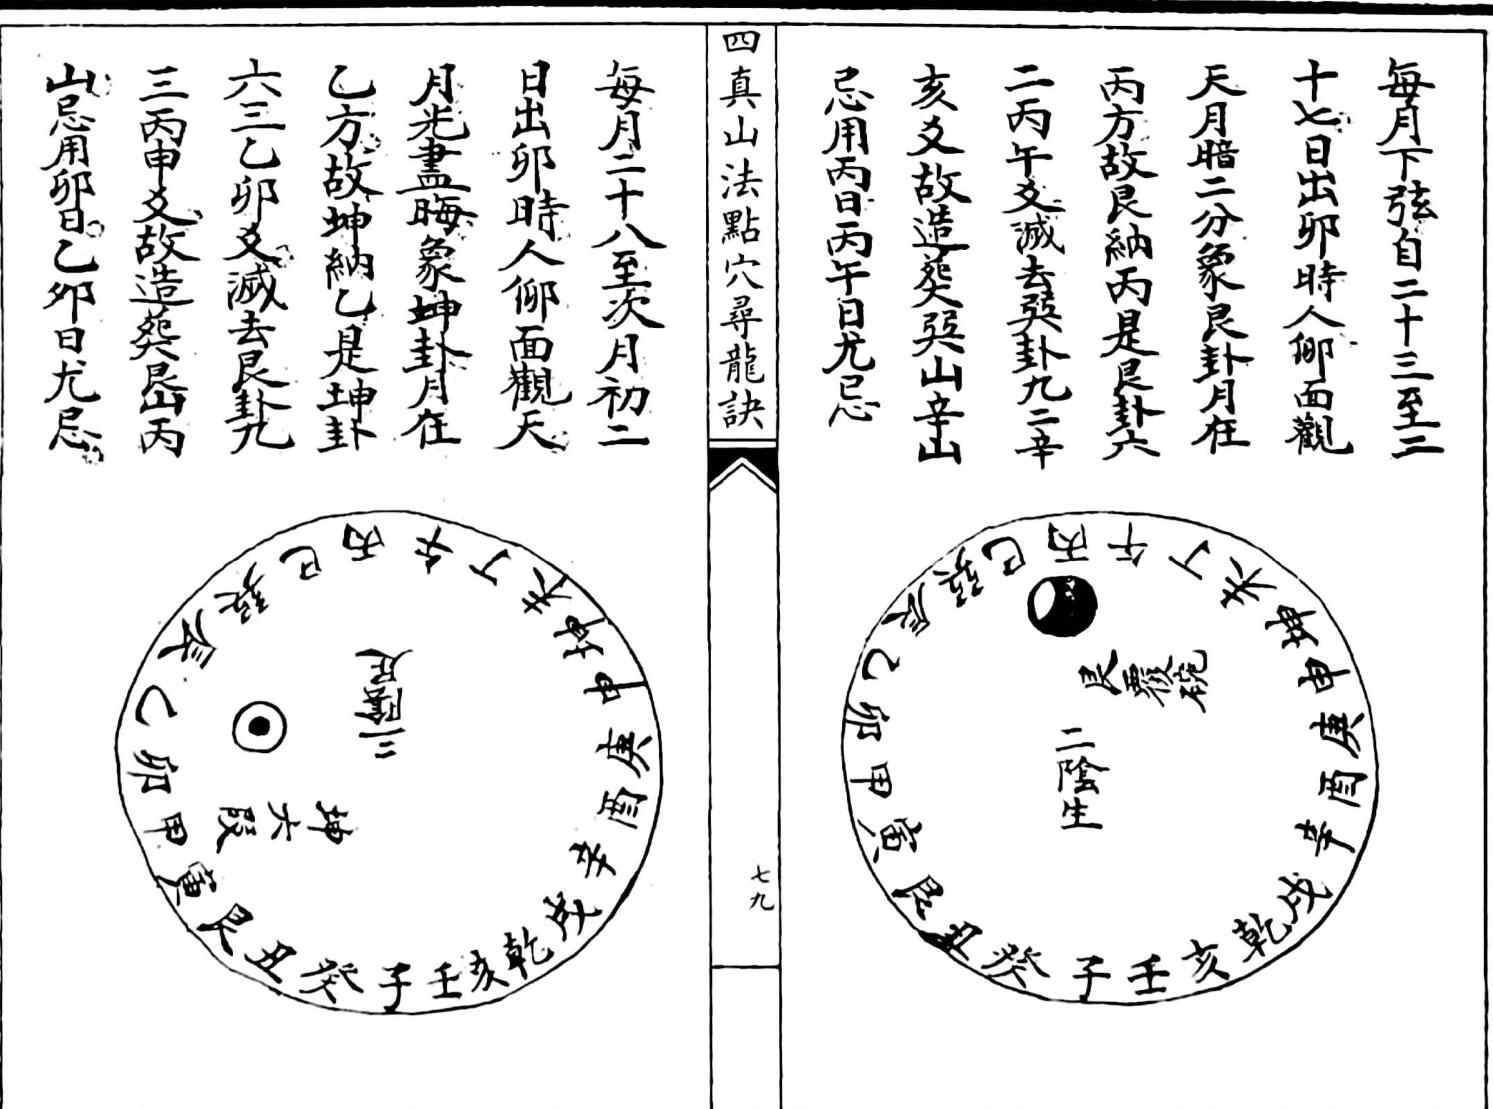 每月下弦自二十三至二
十七日出卯時人仰面觀
天月暗二分象艮卦月在
丙方故艮納丙是艮卦六
二丙午爻滅去巽卦九二辛
亥爻故造葬巽山辛山
忌用丙日丙午日尤忌
午丁未坤申庚酉辛戌乾亥壬子癸丑艮寅甲卯乙辰巽巳丙
艮覆碗
二陰生
四真山法點穴尋龍訣
七九
每月二十八至次月初二
日出卯時人仰面觀天
月光盡晦象坤卦月在
乙方故坤納乙是坤卦
六三乙卯爻滅去艮卦九
三丙申爻故造葬艮山丙
山忌用卯日乙卯日尤忌
午丁未坤申庚酉辛戌乾亥壬子癸丑艮寅甲卯乙辰巽巳丙
三陰足
坤六段